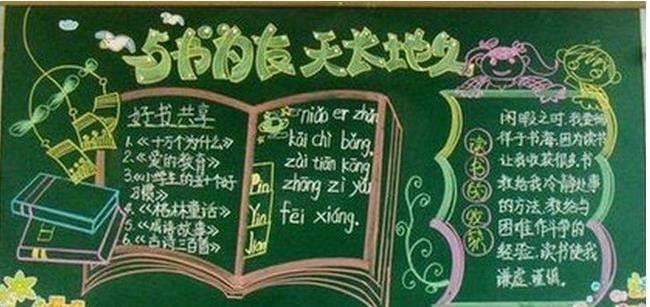 与书为友 天长地久
好书共享
1.《十万个为什么》
2.《爱的教育》
3.《小学生的五十个好
习惯》
4.《格林童话》
5.《成语故事》
6.《古诗三百首》
Pin
Yin
Jiao
niǎo er zhǎn
kāi chì bǎng,
zài tiān kōng
zhōng zì yóu
fēi xiáng.
读书的收获
闲暇之时,我要徜
徉于书海,因为读书
让我收获很多,书
教给我冷静处事
的方法,教给与
困难作斗争的
经验,读书使我
谦虚、谨慎。